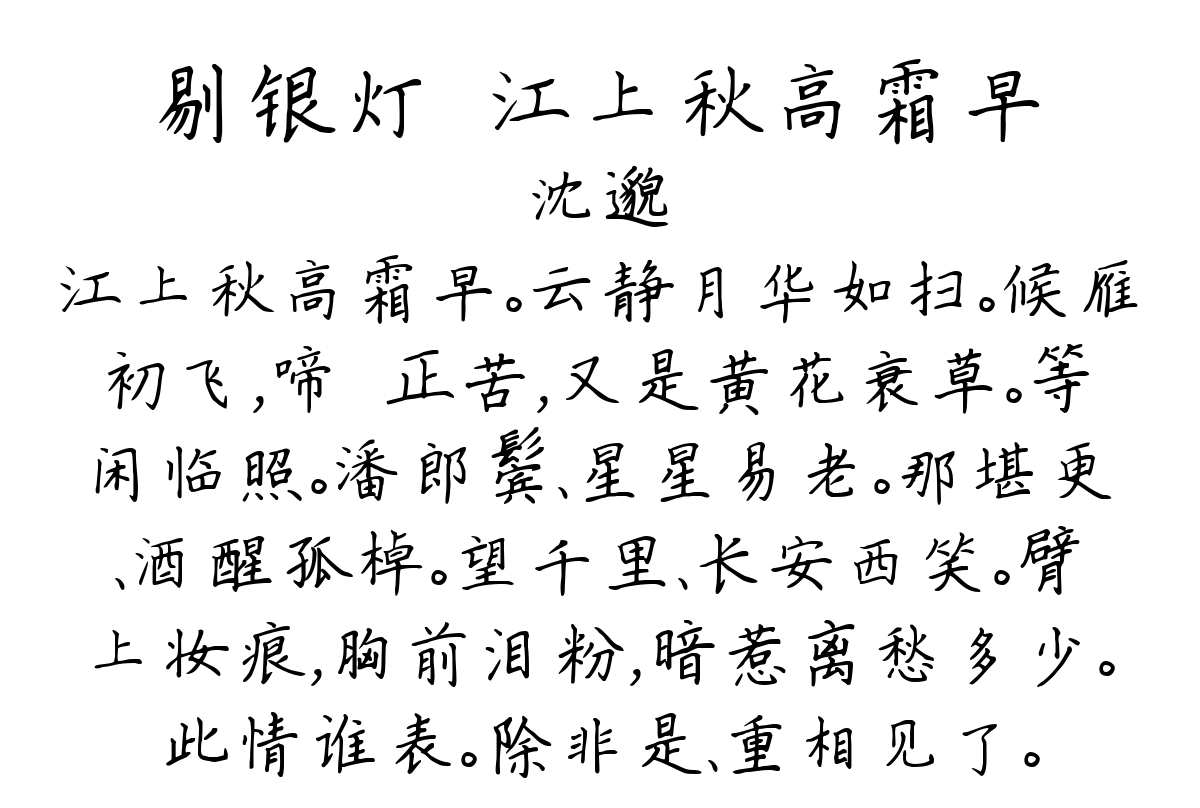 剔银灯 江上秋高霜早
沈邈
江上秋高霜早。云静月华如扫。候雁
初飞,啼 正苦,又是黄花衰草。等
闲临照。潘郎鬓、星星易老。那堪更
、酒醒孤棹。望千里、长安西笑。臂
上妆痕,胸前泪粉,暗惹离愁多少。
此情谁表。除非是、重相见了。